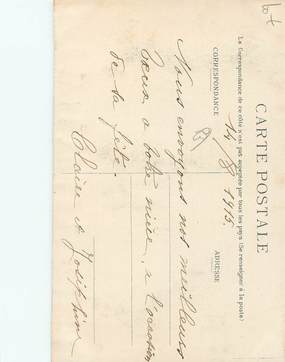 CARTE POSTALE
La Correspondance de ce côté n'est pas acceptée par tous les pays (Se renseigner à la poste)
CORRESPONDANCE
ADRESSE
14/8 1915
Nous envoyons nos meilleurs
vœux à votre nièce, à l'occasion
de sa fête.
Claire et Joséphine